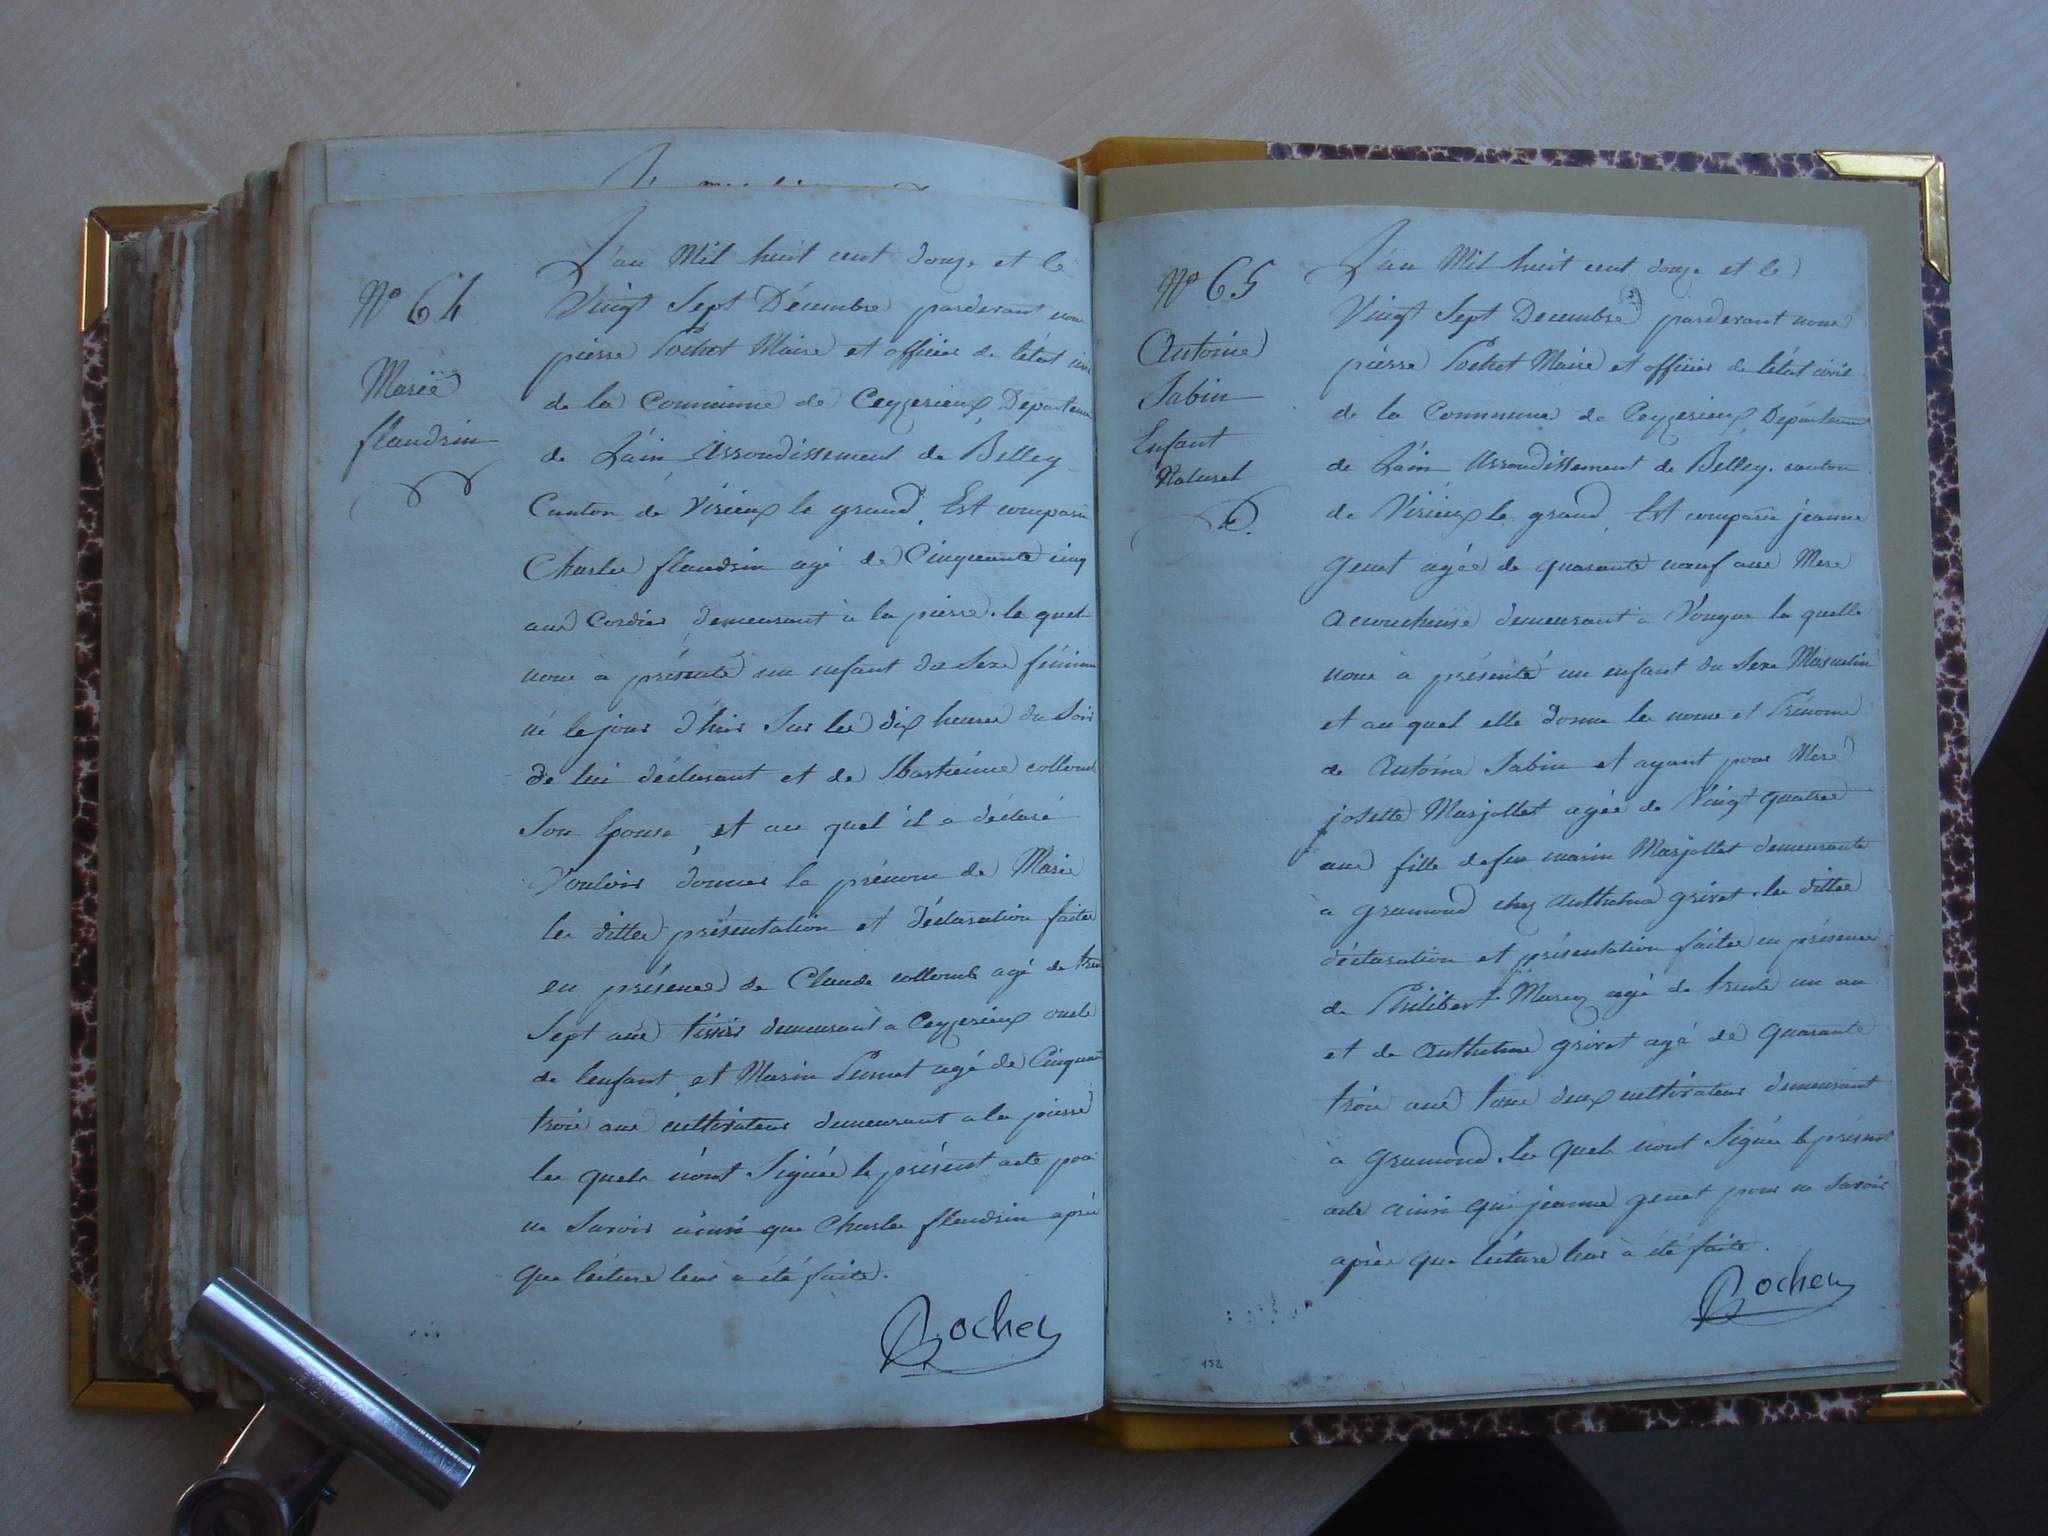 N° 64
Marie
flandrin
L'an Mil huit cent douze et le
Vingt Sept Décembre pardevant nous
pierre Pochet Maire et officier de l'état civil
de la Commune de Ceyzerieux, Départeme
de L'ain Arrondissement de Belley
Canton de Virieux le grand, Est comparu
Charles flandrin agé de Cinquante cinq
ans Cordier demeurant à la pierre. le quel
nous à présenté un enfant du Sexe féminin
né le jour d'hier Sur les dix heures du Soir
de lui déclarant et de Sbastienne collomb
Son Epouse, et au quel il a déclaré
Vouloir donner le prénom de Marie
les dittes présentation et déclaration faites
en présence de Claude collomb agé de trente
Sept ans tissier demeurant à Ceyzerieux oncle
de l'enfant, et Marin agé de Cinquante
trois ans cultivateur demeurant a la pierre
les quels n'ont Signés le présent acte pour
ne Savoir ainsi que Charles flandrin après
que lécture leur a été faite.
Pochet
N° 65
Antoine
Sabin
Enfant
Naturel
L'an Mil huit cent douze et le
Vingt Sept Decembre pardevant nous
pierre Pochet Maire et officier de l'état civil
de la Commune de Ceyzerieux, Départeme
de L'ain Arrondissement de Belley. canton
de Virieux le grand, Est comparue jeanne
genet agée de quarante neuf ans Mere
accoucheuse demeurant à Vongne la quelle
nous à présenté un enfant du Sexe Masculin
et au quel elle donne les noms et Prénoms
de Antoine Sabin et ayant pour Mere
josette Marjollet agée de Vingt quatre
ans fille defeu marin Marjollet demeurante
à gramond chez Anthelme grivet. les dittes
déclaration et présentation faites en présence
de Philibert agé de trente un an
et de Anthelme grivet agé de quarante
trois ans tous deux cultivateurs demeurant
à gramond. les quels n'ont Signés le présent
acte ainsi que jeanne genet pour ne Savoir
après que lécture leur à été faite.
Pochet
152